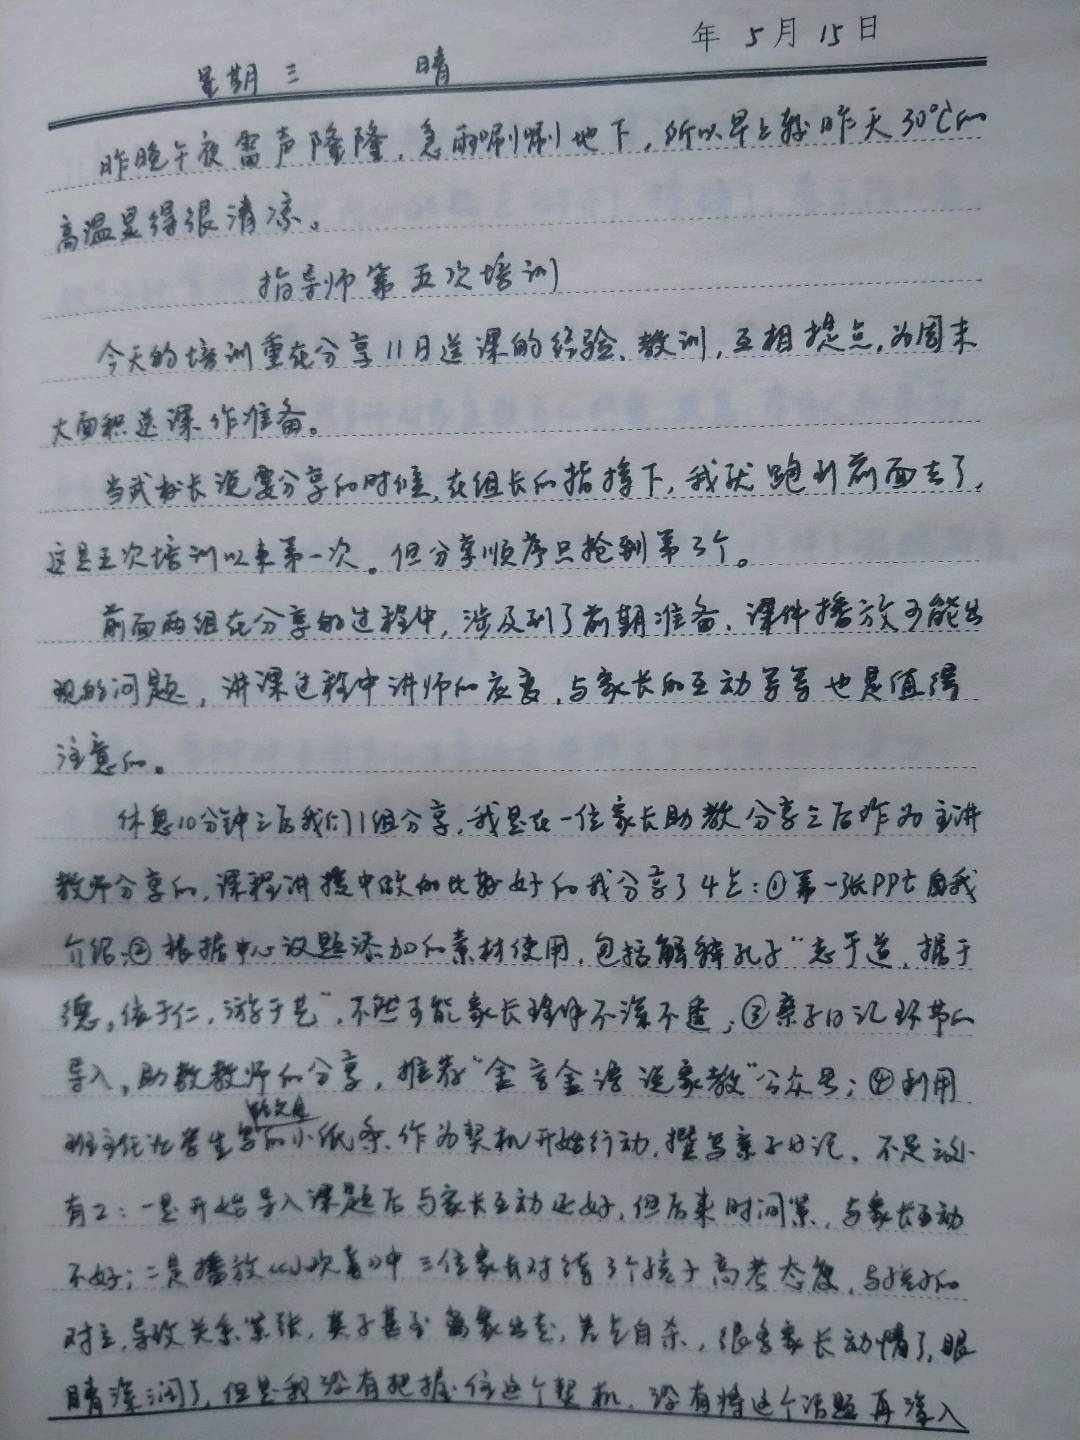 年 5月 15日
星期三 晴
昨晚午夜雷声隆隆，急雨唰唰地下，所以早上较昨天30℃的
高温显得很清凉。
指导师第五次培训
今天的培训重在分享11月送课的经验、教训，互相提点，为周末
大面积送课作准备。
当武校长说要分享的时候，在组长的指挥下，我就跑到前面去了，
这是五次培训以来第一次。但分享顺序只抢到第3个。
前面两组在分享的过程中，涉及到了前期准备、课件播放可能出
现的问题，讲课过程中讲师的应变，与家长的互动等等也是值得
注意的。
休息10分钟之后我们1组分享，我是在一位家长助教分享之后作为主讲
教师分享的，课程讲授中做的比较好的我分享了4点：①第一张PPt自我
介绍；②根据中心议题添加的素材使用，包括解释孔子“志于道，据于
德，依于仁，游于艺”，不然可能家长理解不深不透；③亲子日记环节的
导入，助教教师的分享，推荐“金言金语说家教”公众号；④利用
班主任让学生写给父母的小纸条，作为契机开始行动，撰写亲子日记。不足之处
有2：一是开始导入课题后与家长互动还好，但后来时间紧，与家长互动
不好；二是播放《小欢喜》中三位家长对待3个孩子高考态度，与孩子的
对立，导致关系紧张，英子甚至离家出走，差点自杀，很多家长动情了，眼
睛湿润了，但是我没有把握住这个契机，没有将这个话题再深入